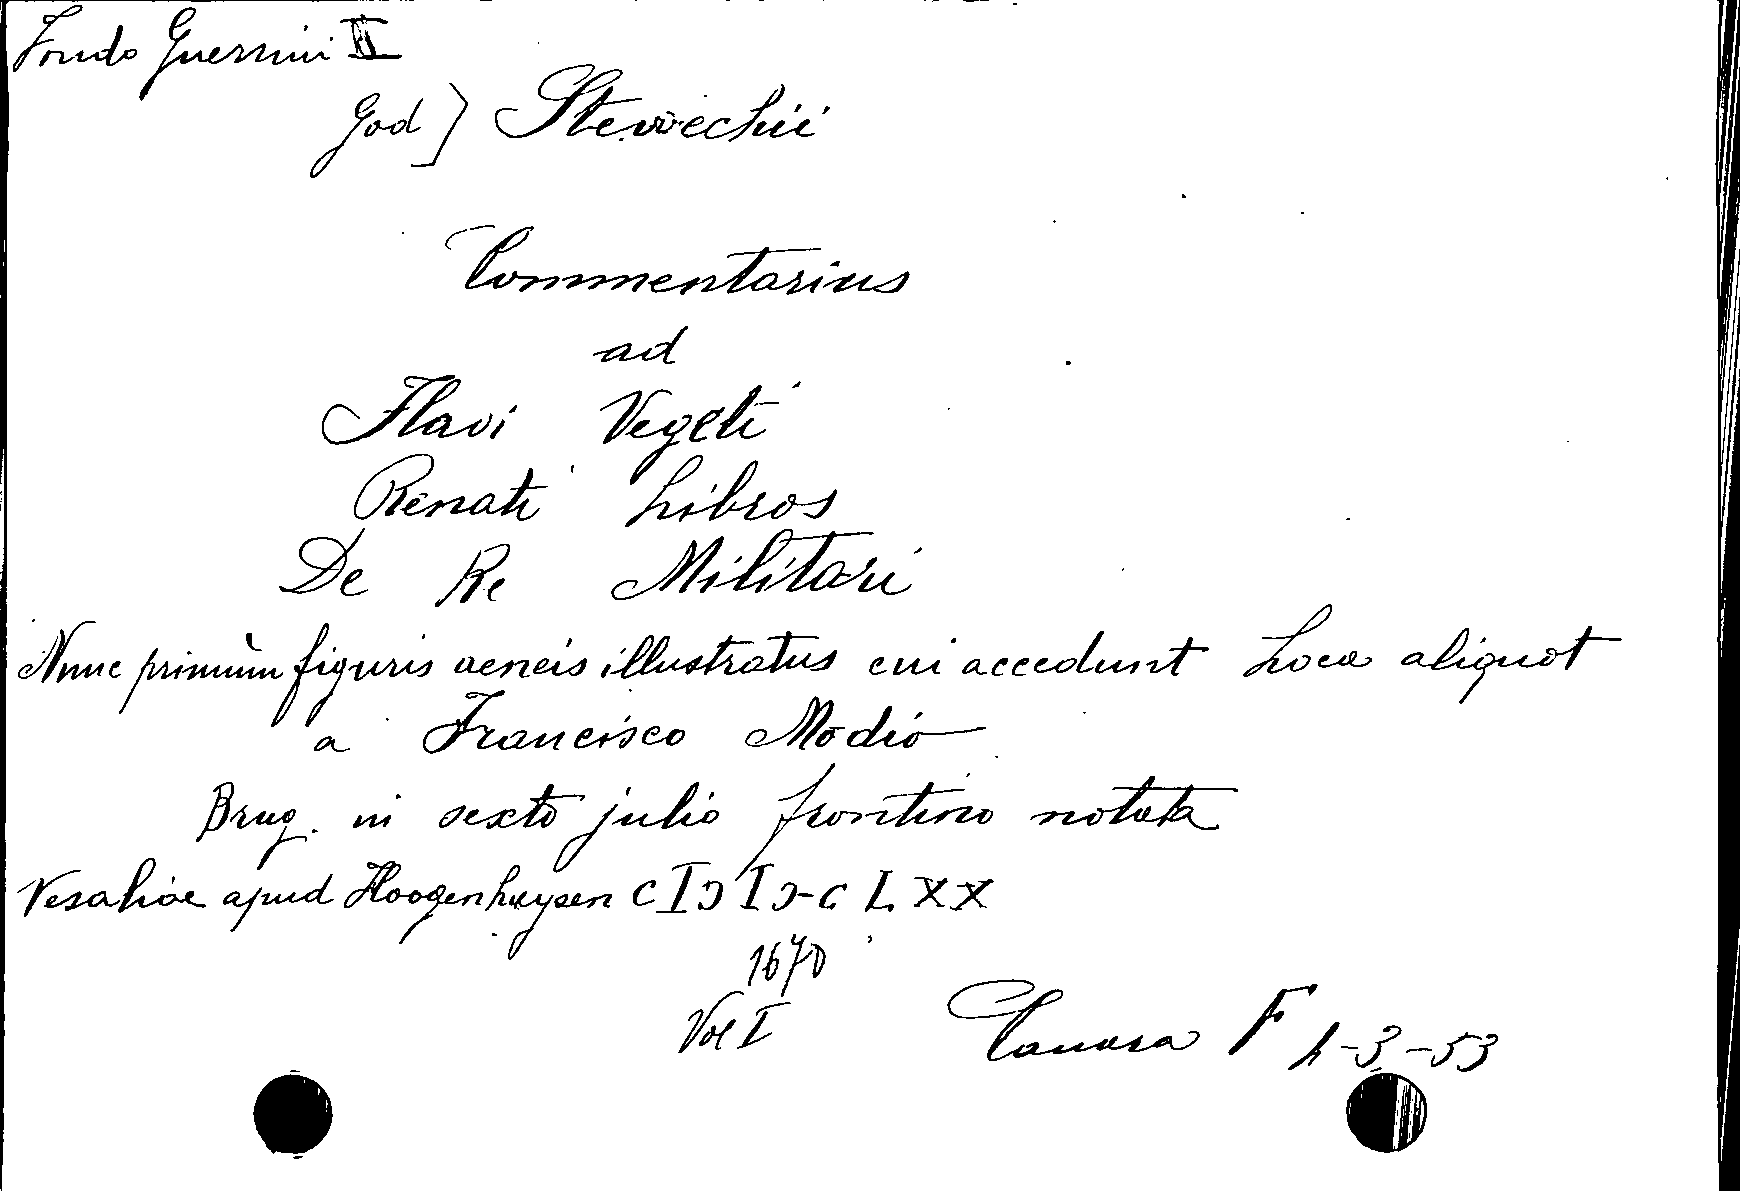 Fondo Guerrini II
God] Stewechii
Commentarius
ad
Flavi Vegeti
Renati Libros
De Re Militari
Nunc primùm figuris aeneis illustratus cui accedunt Loca aliquot
a Francisco Modio
Brug. in sexto julio frontino notata
Vesaliae apud Hoogenhuysen CIↃ IↃ-C LXX
1670
Vol I
Camera F h-3-53